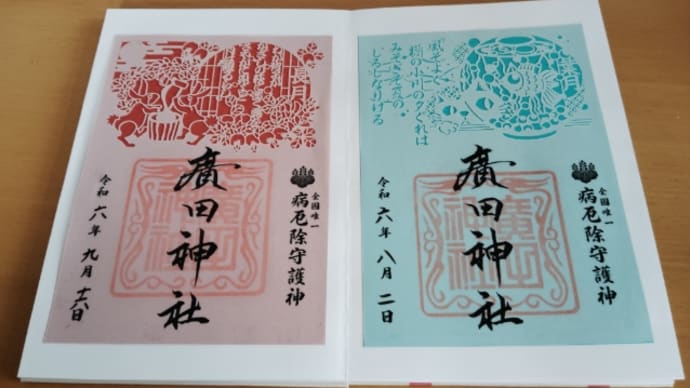 風そよぐ
楢の小川の夕ぐれは
みそぎぞ夏の
しるしなりける
全国唯一
病厄除守護神
廣田神社
令和六年八月二日
長月
全国唯一
病厄除守護神
廣田神社
令和六年九月